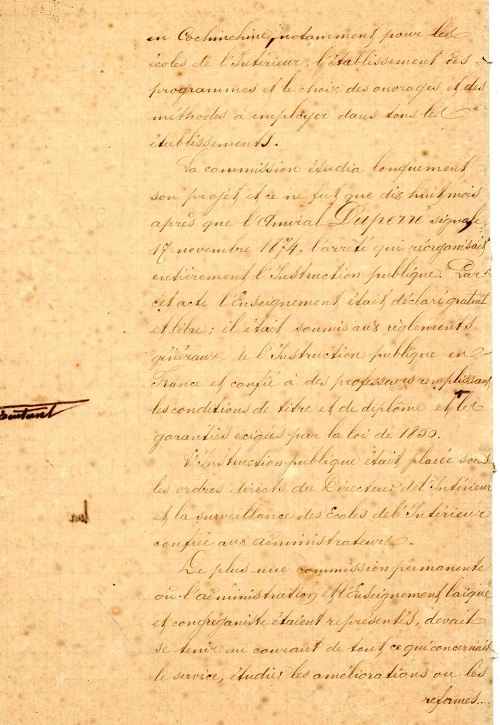 en Cochinchine, notamment pour les
écoles de l'Intérieur, l'établissement des
programmes et le choix des ouvrages et des
méthodes à employer dans tous les
établissements.
La commission étudia longuement
son projet et ce ne fut que dix huit mois
après que l'Amiral Duperré signa le
17 novembre 1874, l'arrêté qui réorganisait
entièrement l'Instruction publique. Par
cet acte l'Enseignement était déclaré gratuit
et libre; il était soumis aux règlements
généraux de l'Instruction publique en
France et confié à des professeurs remplissant
les conditions de titre et de diplôme et les
garanties exigées par la loi de 1850.
L'Instruction publique était placée sous
les ordres directs du Directeur de l'Intérieur
et la surveillance des Ecoles de l'Intérieur
confiée aux administrateurs.
De plus une commission permanente
où l'administration et l'Enseignement laïque
et congréganiste étaient représentés, devait
se tenir au courant de tout ce qui concernait
le service, étudier les améliorations ou les
réformes...